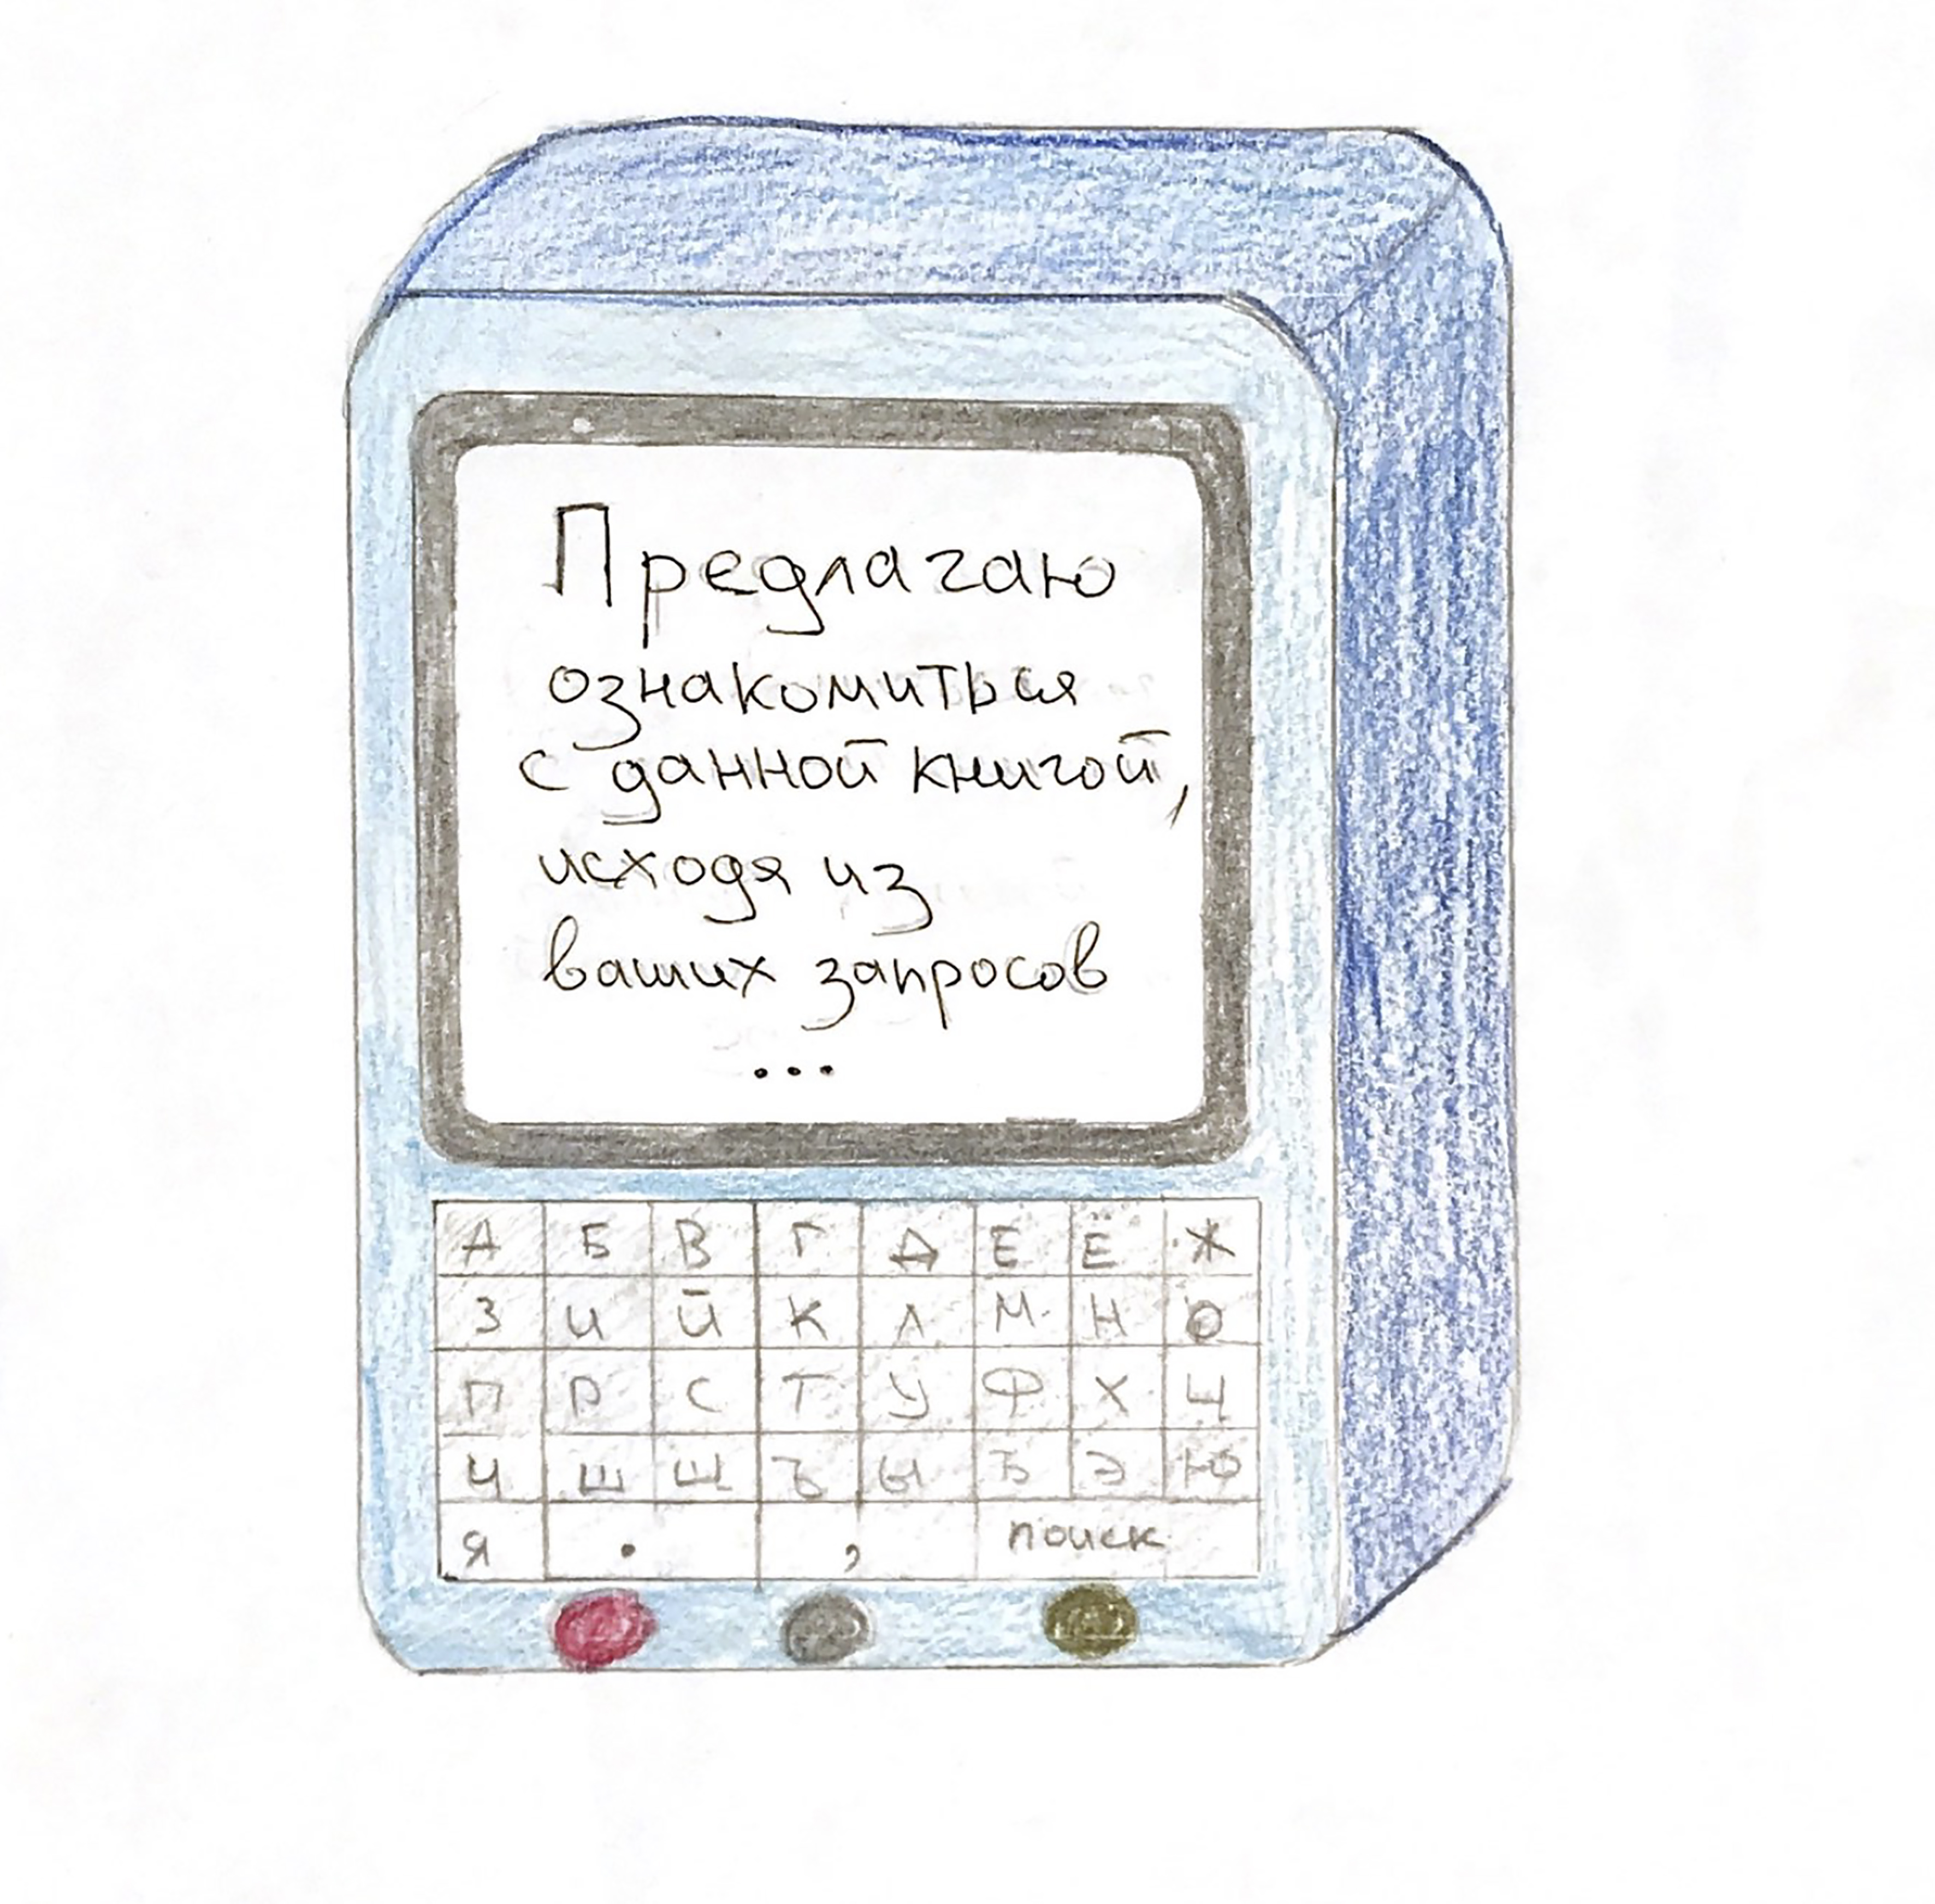 Предлагаю
ознакомиться
с данной книгой,
исходя из
ваших запросов
...
А Б В Г Д Е Ё Ж
З И Й К Л М Н О
П Р С Т У Ф Х Ц
Ч Ш Щ Ъ Ы Ь Э Ю
Я . , поиск